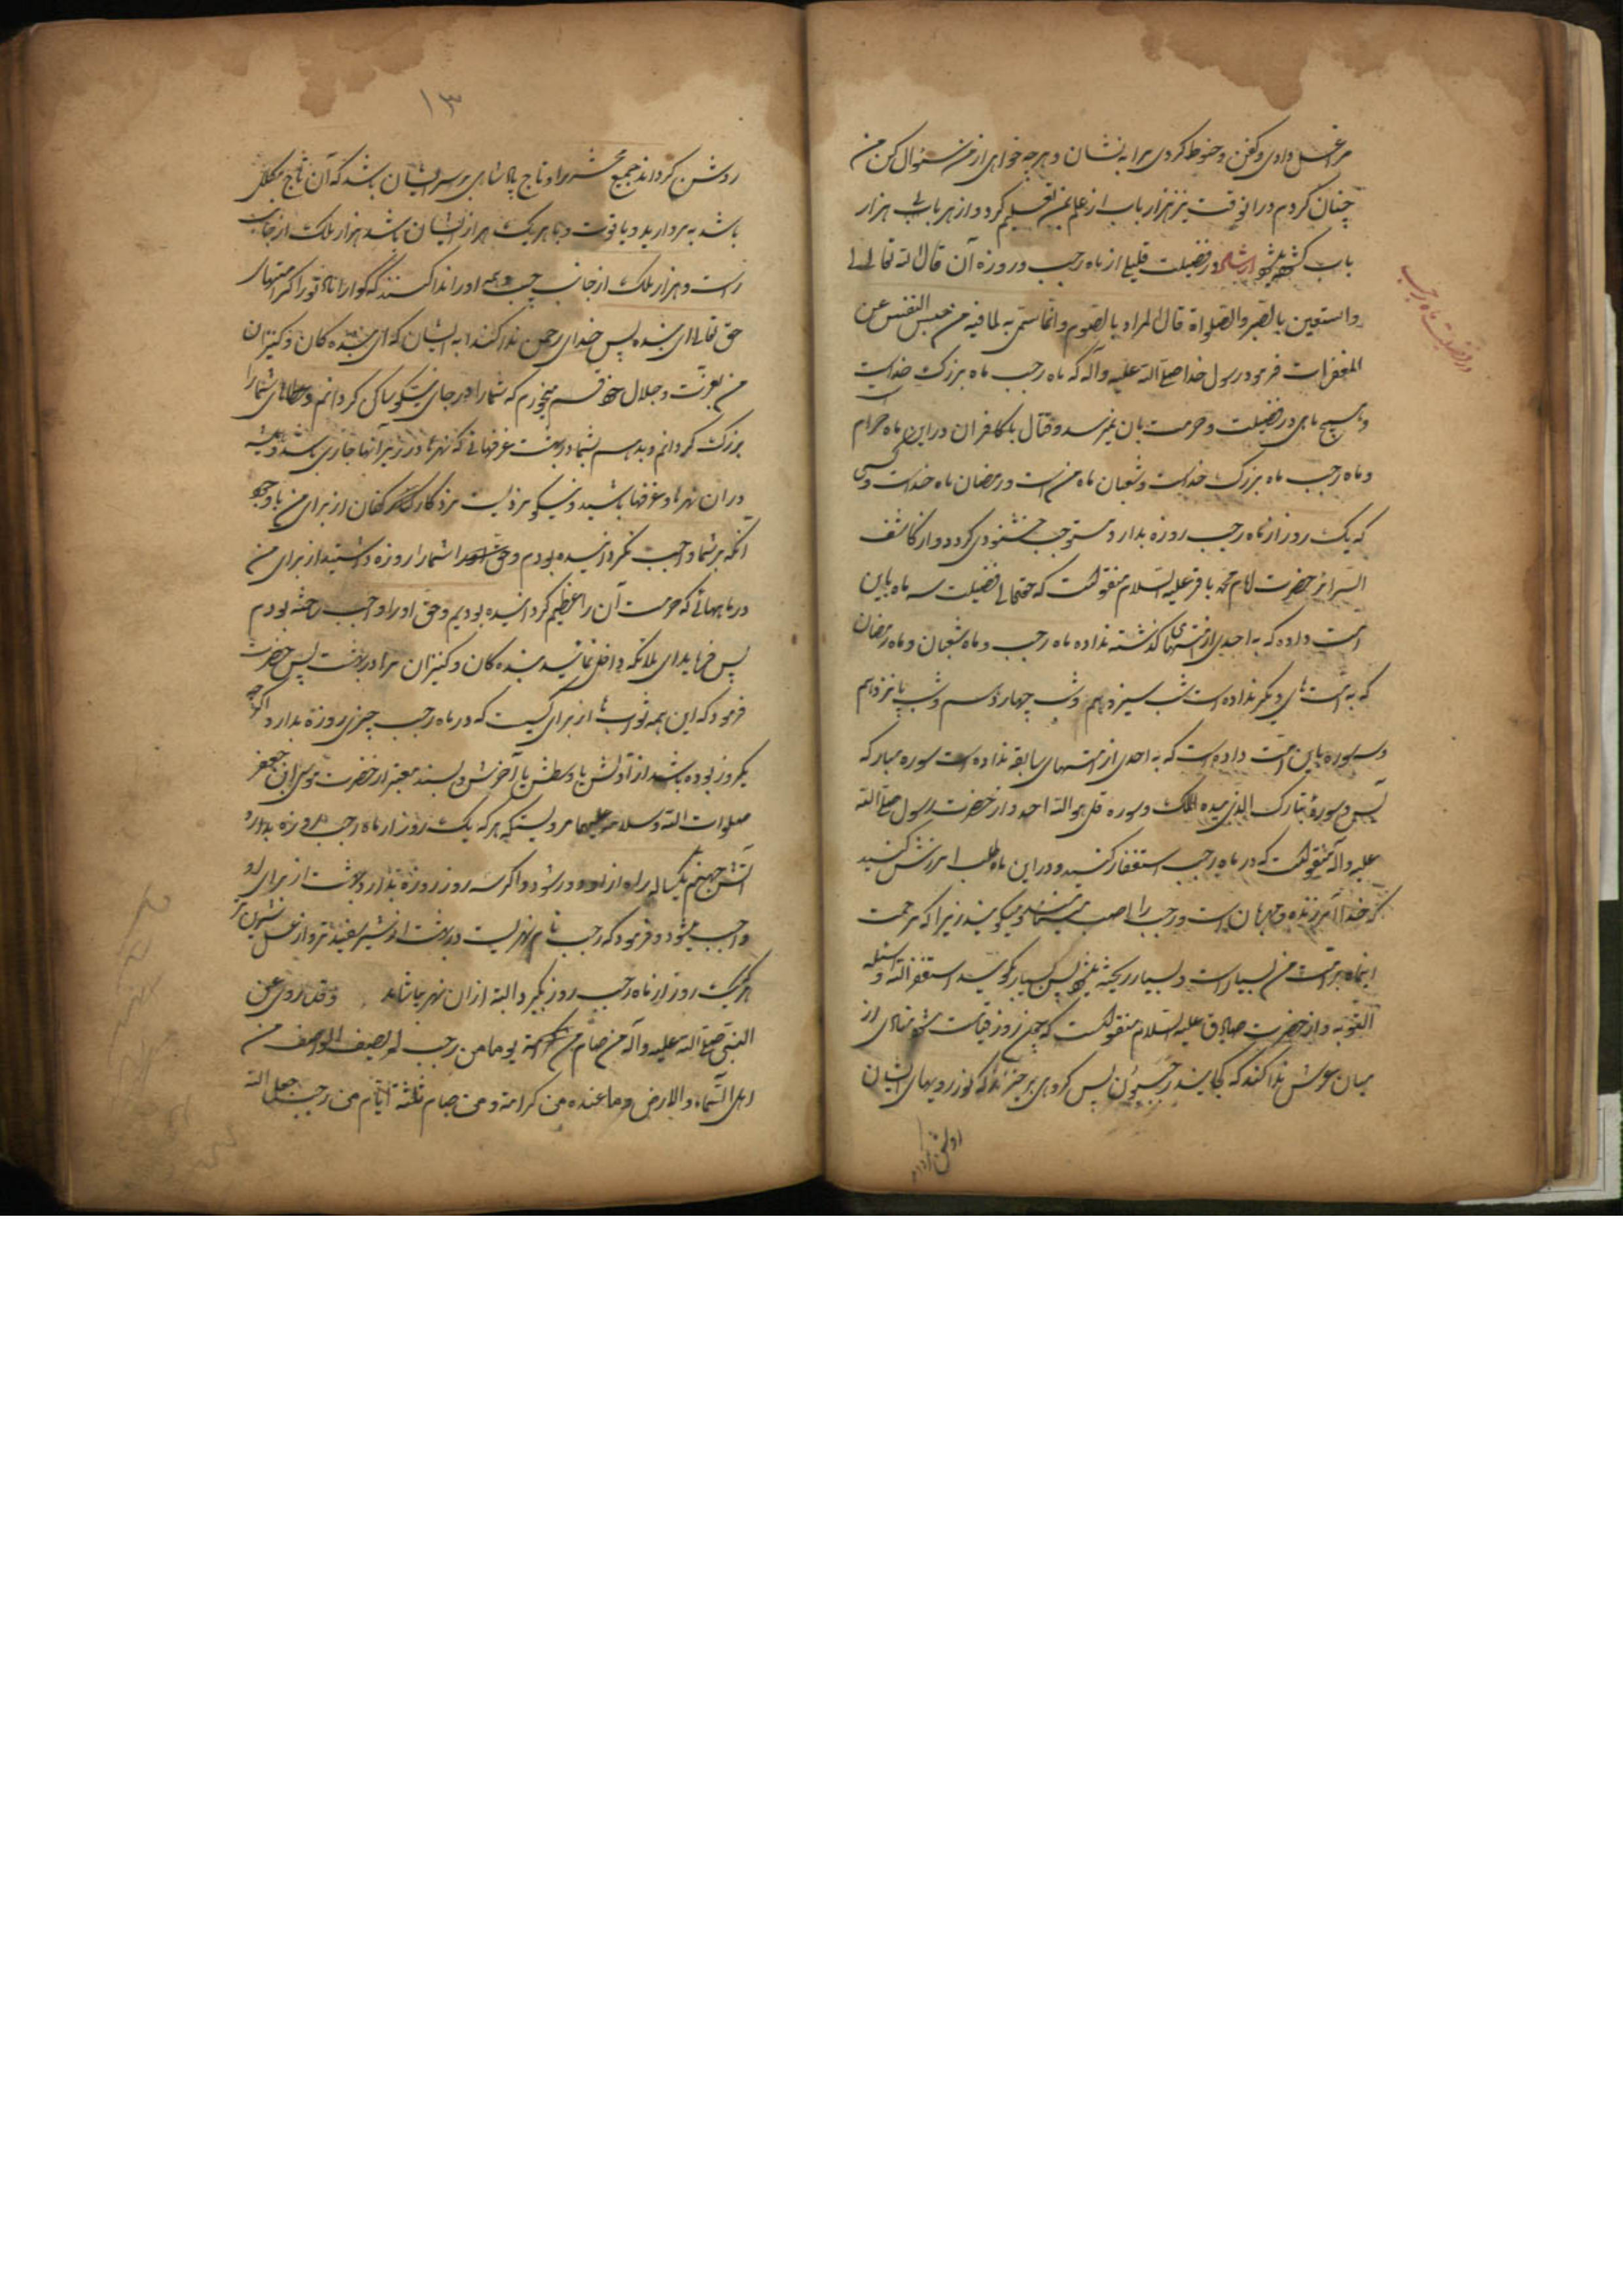 مرا غسل دادی و کفن و حنوط کردی مرا به نشان و هر چه خواهی از من سئوال کن من
چنان کردم در انوقت نیز هزار باب از علم بمن تعلیم کرد و از هر بابی هزار
باب در فضیلت قلیلی از ماه رجب و روزه آن قال الله تعالی
واستعین بالصبر والصلواة قال المراد بالصوم وانما سمی به لما فیه من حبس النفس عن
المفطرات فرمود رسول خدا صلی الله علیه وآله که ماه رجب ماه بزرگ خداست
و هیچ ماهی در فضیلت و حرمت بان نمیرسد و قتال با کافران در این ماه حرام است
و ماه رجب ماه بزرگ خداست و شعبان ماه من است و رمضان ماه خداست و کسی
که یک روز از ماه رجب روزه بدارد مستوجب خشنودی کردد و از کاشف
السرائر حضرت امام محمد باقر علیه السلام منقولست که حقتعالی فضیلت سه ماه باین
امت داده که به احدی از امتهای کذشته نداده ماه رجب و ماه شعبان و ماه رمضان
که به امت های دیکر نداده است شب سیزدهم و شب چهاردهم و شب پانزدهم
و سه سوره باین امت داده است که به احدی از امتهای سابقه نداده است سوره مبارکه
یس و سوره تبارک الذی بیده الملک و سوره قل هو الله احد و از حضرت رسول صلی الله
علیه واله منقولست که در ماه رجب استغفار کنید و در این ماه طلب امرزش کنید
که خدا آمرزنده و مهربان است و رجب را اصب میکویند زیرا که رحمت
اینماه بر امت من بسیار است و بسیار ریخته میشود پس بسیار بکوئید استغفر الله و اسئله
التوبه و از حضرت صادق علیه السلام منقولست که چون روز قیامت شود منادی از
میان عرش ندا کند که کجایند رجبیون پس کروهی بر خیزند که نور رویهای ایشان
روشن کرداند
در فضیلت ماه رجب
۱۳
روشن کرداند جمیع محشر را و تاج پادشاهی بر سر ایشان باشد که آن تاج مکلل
باشد به مروارید و یاقوت و با هر یک از ایشان باشد هزار ملک از جانب
راست و هزار ملک از جانب چپ و همه او را ندا کنند که کوارا باد تو را کرامتهای
حق تعالی ای بنده پس خدای رحمن ندا کند به ایشان که ای بنده کان و کنیزان
من بعزت و جلال خود قسم میخورم که شما را در جای نیکو ساکن کردانم و عطاهای شما را
بزرک کردانم و بدهم بشما در بهشت غرفهائی که نهرها در زیر آنها جاری باشد و همیشه
در ان نهرها و غرفها باشید و نیکو مزدیست مزد کارکنان از برای من باوجود
آنکه بر شما واجب نکردانیده بودم و حق شما را روزه داشتید از برای من
در ماههائی که حرمت آن را عظیم کردانیده بودیم و حق او را واجب ساخته بودم
پس فرماید ای ملائکه داخل نمائید بنده کان و کنیزان مرا در بهشت پس حضرت
فرمود که این همه ثوابها از برای کسیست که در ماه رجب چیزی روزه بدارد اکرچه
یکروز بوده باشد از اولش یا وسطش یا آخرش و بسند معتبر از حضرت موسی ابن جعفر
صلوات الله و سلامه علیهما مرویستکه هر که یک روز از ماه رجب روزه بدارد
آتش جهنم یکساله راه از او دور شود و اکر سه روز روزه بدارد بهشت از برای او
واجب میشود و فرمود که رجب نام نهریست در بهشت از شیر سفیدتر و از عسل شیرین تر
هر که یک روز از ماه رجب روزه بکیرد البته از ان نهر بیاشامد وقد روی عن
النبی صلی الله علیه وآله من صام من یوما من رجب لم یصف الواصف من
اهل السماء والارض وما عنده من کرامة ومن صام ثلثة ایام من رجب جعل الله